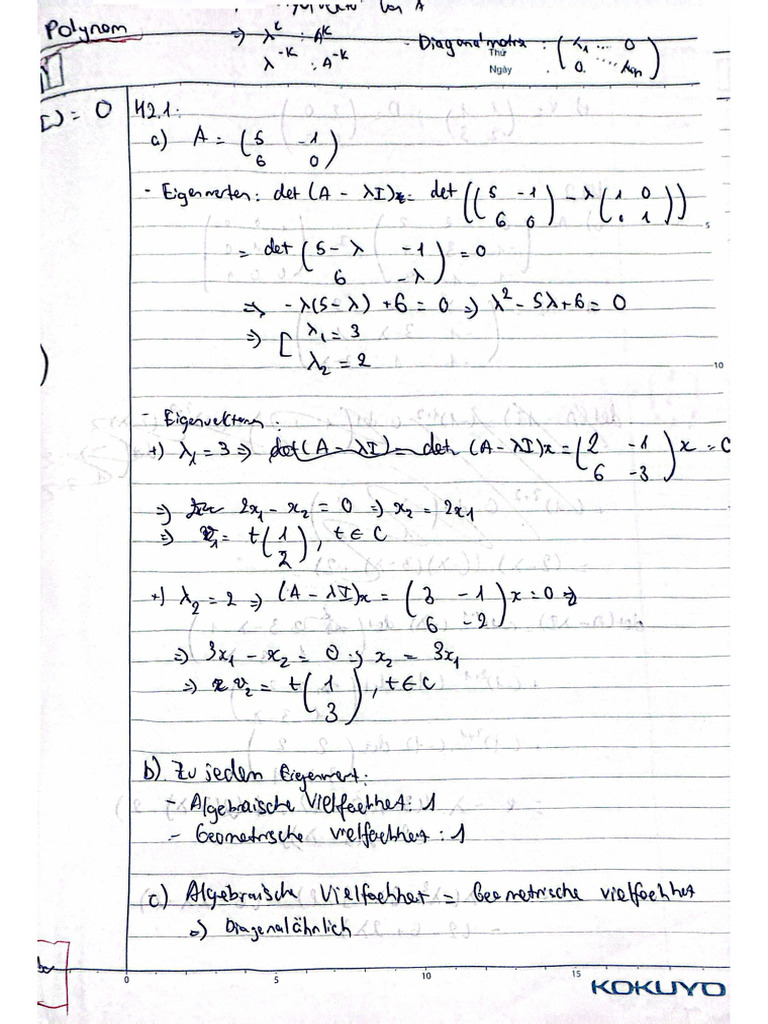 Polynom
=> λ^K : A^K
λ^-K : A^-K
- Diagonalmatrix : (λ1 ... 0
0. ... λn)
Thứ
Ngày
) = 0
H2.1:
a) A = (5 -1
6 0)
- Eigenwerten: det (A - λI) = det ((5 -1
6 0) - λ(1 0
0 1))
= det (5-λ -1
6 -λ) = 0
=> -λ(5-λ) + 6 = 0 => λ² - 5λ + 6 = 0
=> [ λ1 = 3
λ2 = 2
- Eigenvektoren:
+) λ1 = 3 => det(A - λI) = det (A - λI)x = (2 -1
6 -3)x = 0
=> 2x1 - x2 = 0 => x2 = 2x1
=> v1 = t(1
2), t ∈ C
+) λ2 = 2 => (A - λI)x = (3 -1
6 -2)x = 0 =>
=> 3x1 - x2 = 0 => x2 = 3x1
=> v2 = t(1
3), t ∈ C
b) Zu jeden Eigenwert:
- Algebraische Vielfachheit: 1
- Geometrische vielfachheit: 1
c) Algebraische Vielfachheit = Geometrische vielfachheit
=> Diagonalähnlich
0 5 10 15
5
10
KOKUYO